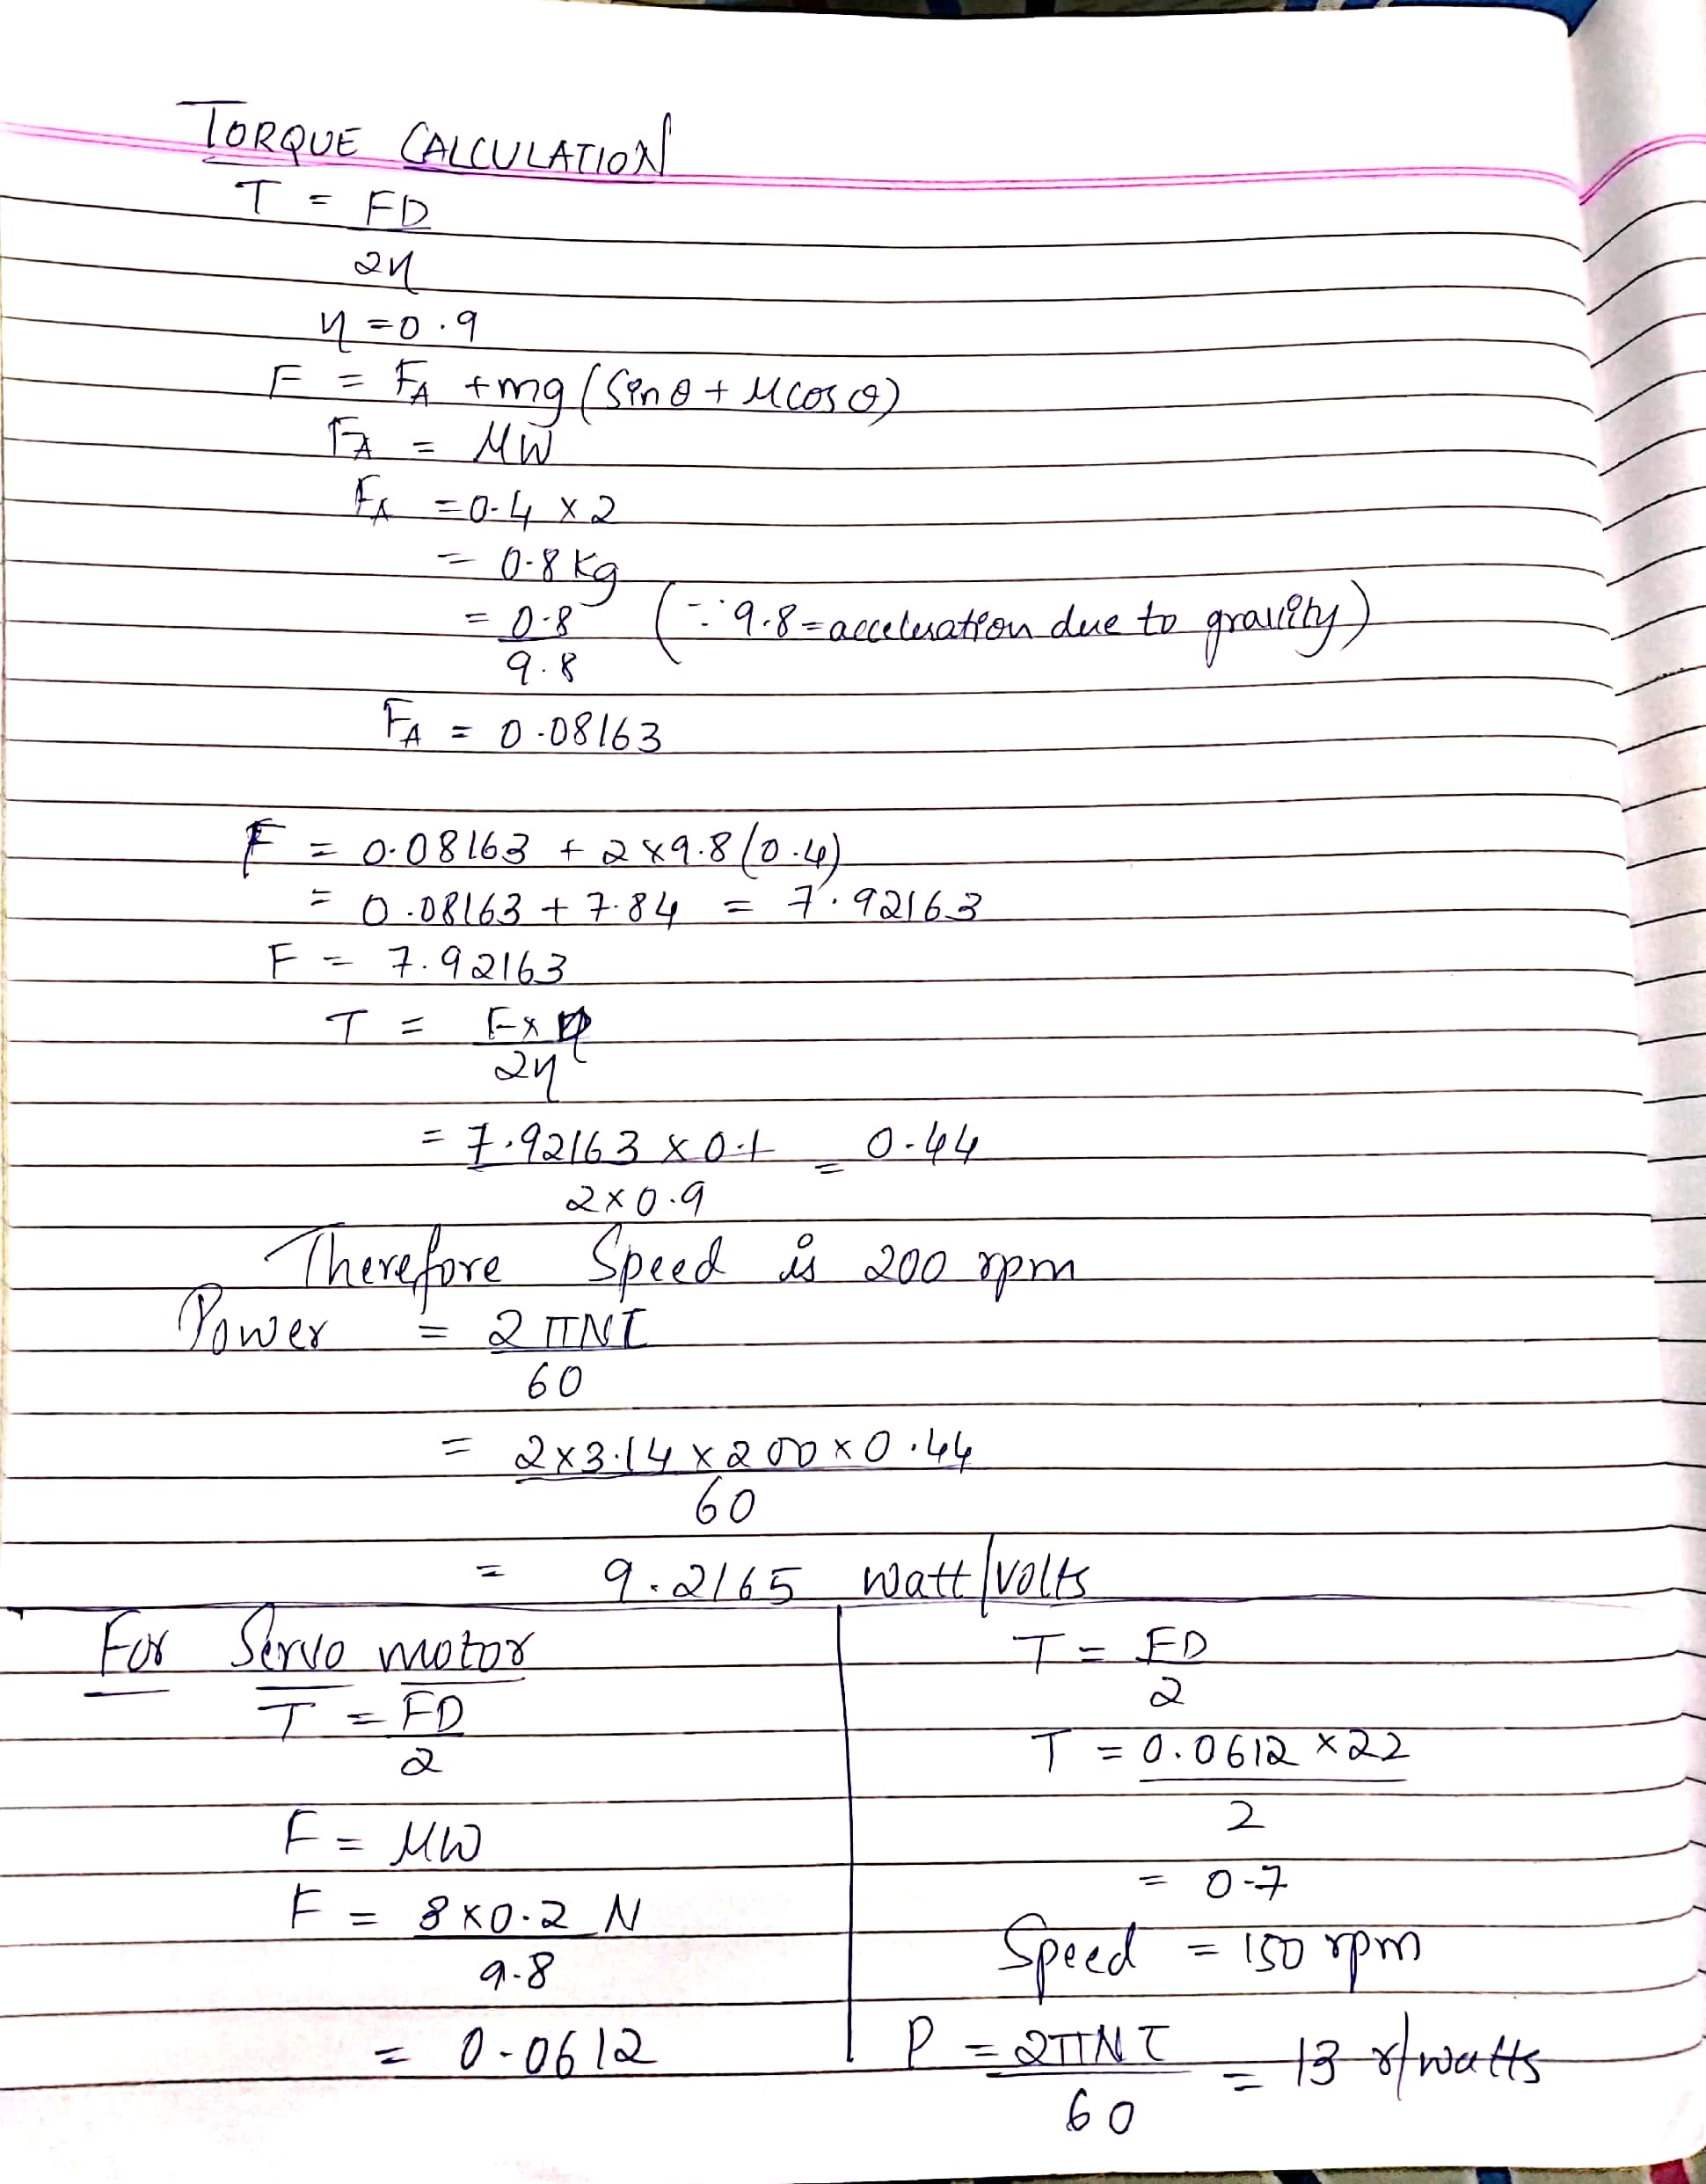 TORQUE CALCULATION
T = FD
2η
η = 0.9
F = FA + mg (Sin θ + μ cos θ)
FA = μW
FA = 0.4 × 2
= 0.8 kg
= 0.8 (∵ 9.8 = acceleration due to gravity)
9.8
FA = 0.08163
F = 0.08163 + 2 × 9.8 (0.4)
= 0.08163 + 7.84 = 7.92163
F = 7.92163
T = F × D
2η
= 7.92163 × 0.1 = 0.44
2 × 0.9
Therefore Speed is 200 rpm
Power = 2 πNT
60
= 2×3.14 × 200 × 0.44
60
= 9.2165 watt/volts
For Servo motor
T = FD
2
F = μW
F = 3 × 0.2 N
9.8
= 0.0612
T = FD
2
T = 0.0612 × 22
2
= 0.7
Speed = 150 rpm
P = 2πNT = 13 /watts
60